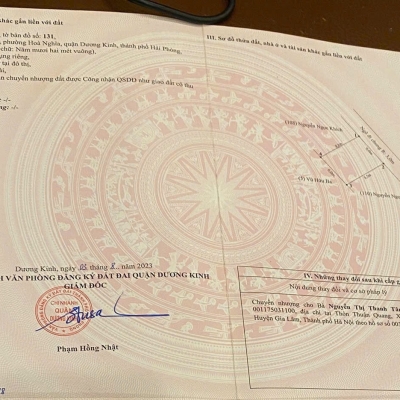 khác gắn liền với đất
tờ bản đồ số: 131,
phường Hoà Nghĩa, quận Dương Kinh, thành phố Hải Phòng,
chữ: Năm mươi hai mét vuông),
ụng riêng,
tại đô thị,
ài,
n chuyển nhượng đất được Công nhận QSDĐ như giao đất có thu
: -/-
ng: -/-
Dương Kinh, ngày 03 tháng 8. năm 2023
H VĂN PHÒNG ĐĂNG KÝ ĐẤT ĐAI QUẬN DƯƠNG KINH
GIÁM ĐỐC
CHI NHÁNH
QUẬN
Phạm Hồng Nhật
III. Sơ đồ thửa đất, nhà ở và tài sản khác gắn liền với đất
(108) Nguyễn Ngọc Khánh
(5) Vũ Hữu Ba
(110) Nguyễn Ngọ
IV. Những thay đổi sau khi cấp g
Nội dung thay đổi và cơ sở pháp lý
Chuyển nhượng cho Bà Nguyễn Thị Thanh Tâ
001175031100, địa chỉ tại Thôn Thuận Quang, X
Huyện Gia Lâm, Thành phố Hà Nội theo hồ sơ số 005